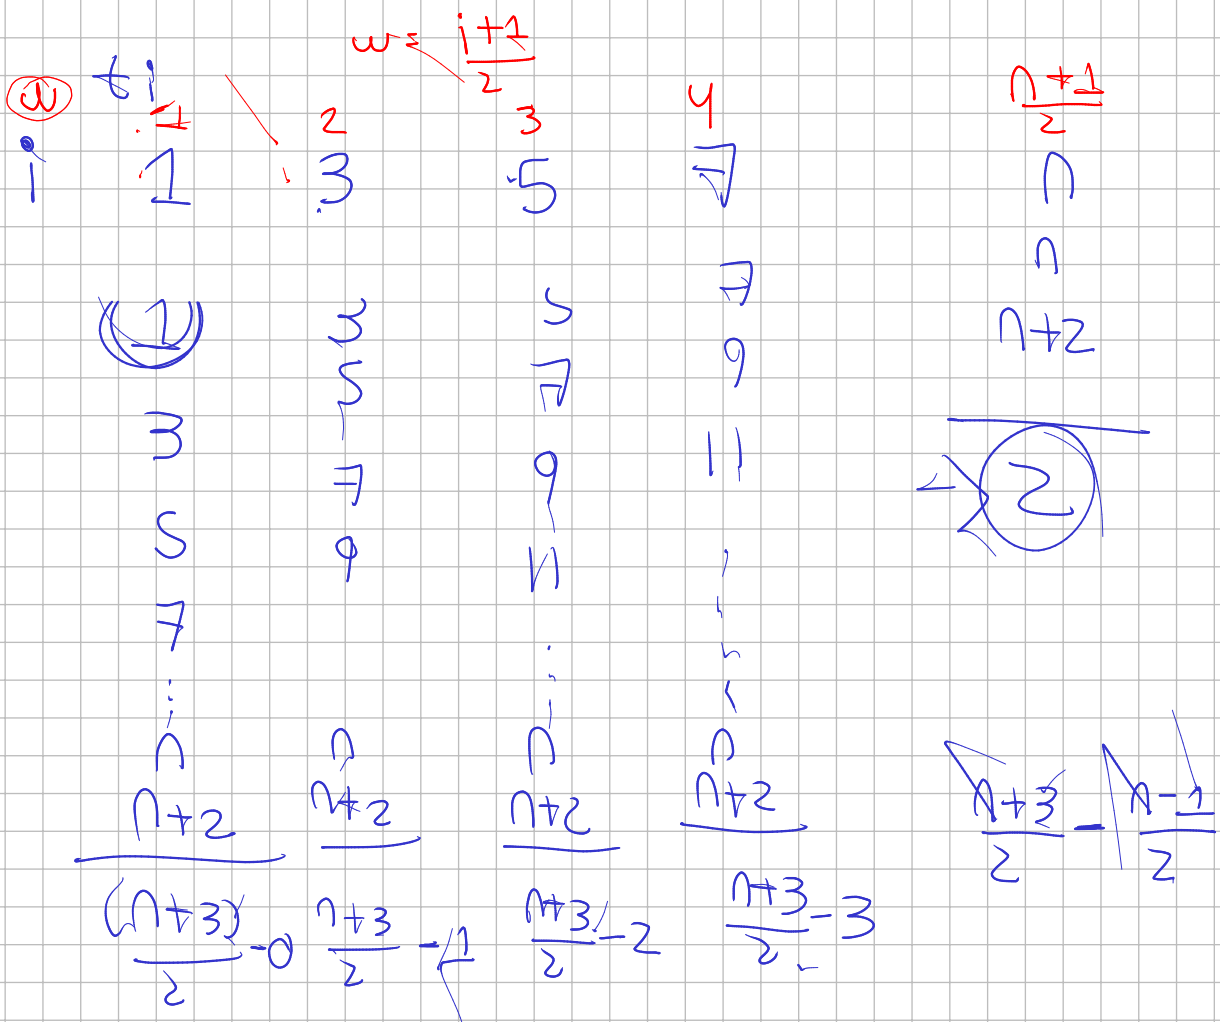 w = i+1/2
w ti
1 2 3 4 n+1/2
i 1 3 5 7 n
1 3 5 7 n
3 5 7 9 n+2
5 7 9 11 2
7 9 11
n n n n
n+2 n+2 n+2 n+2 n+3/2 - n-1/2
(n+3)/2 - 0 n+3/2 - 1 n+3/2 - 2 n+3/2 - 3